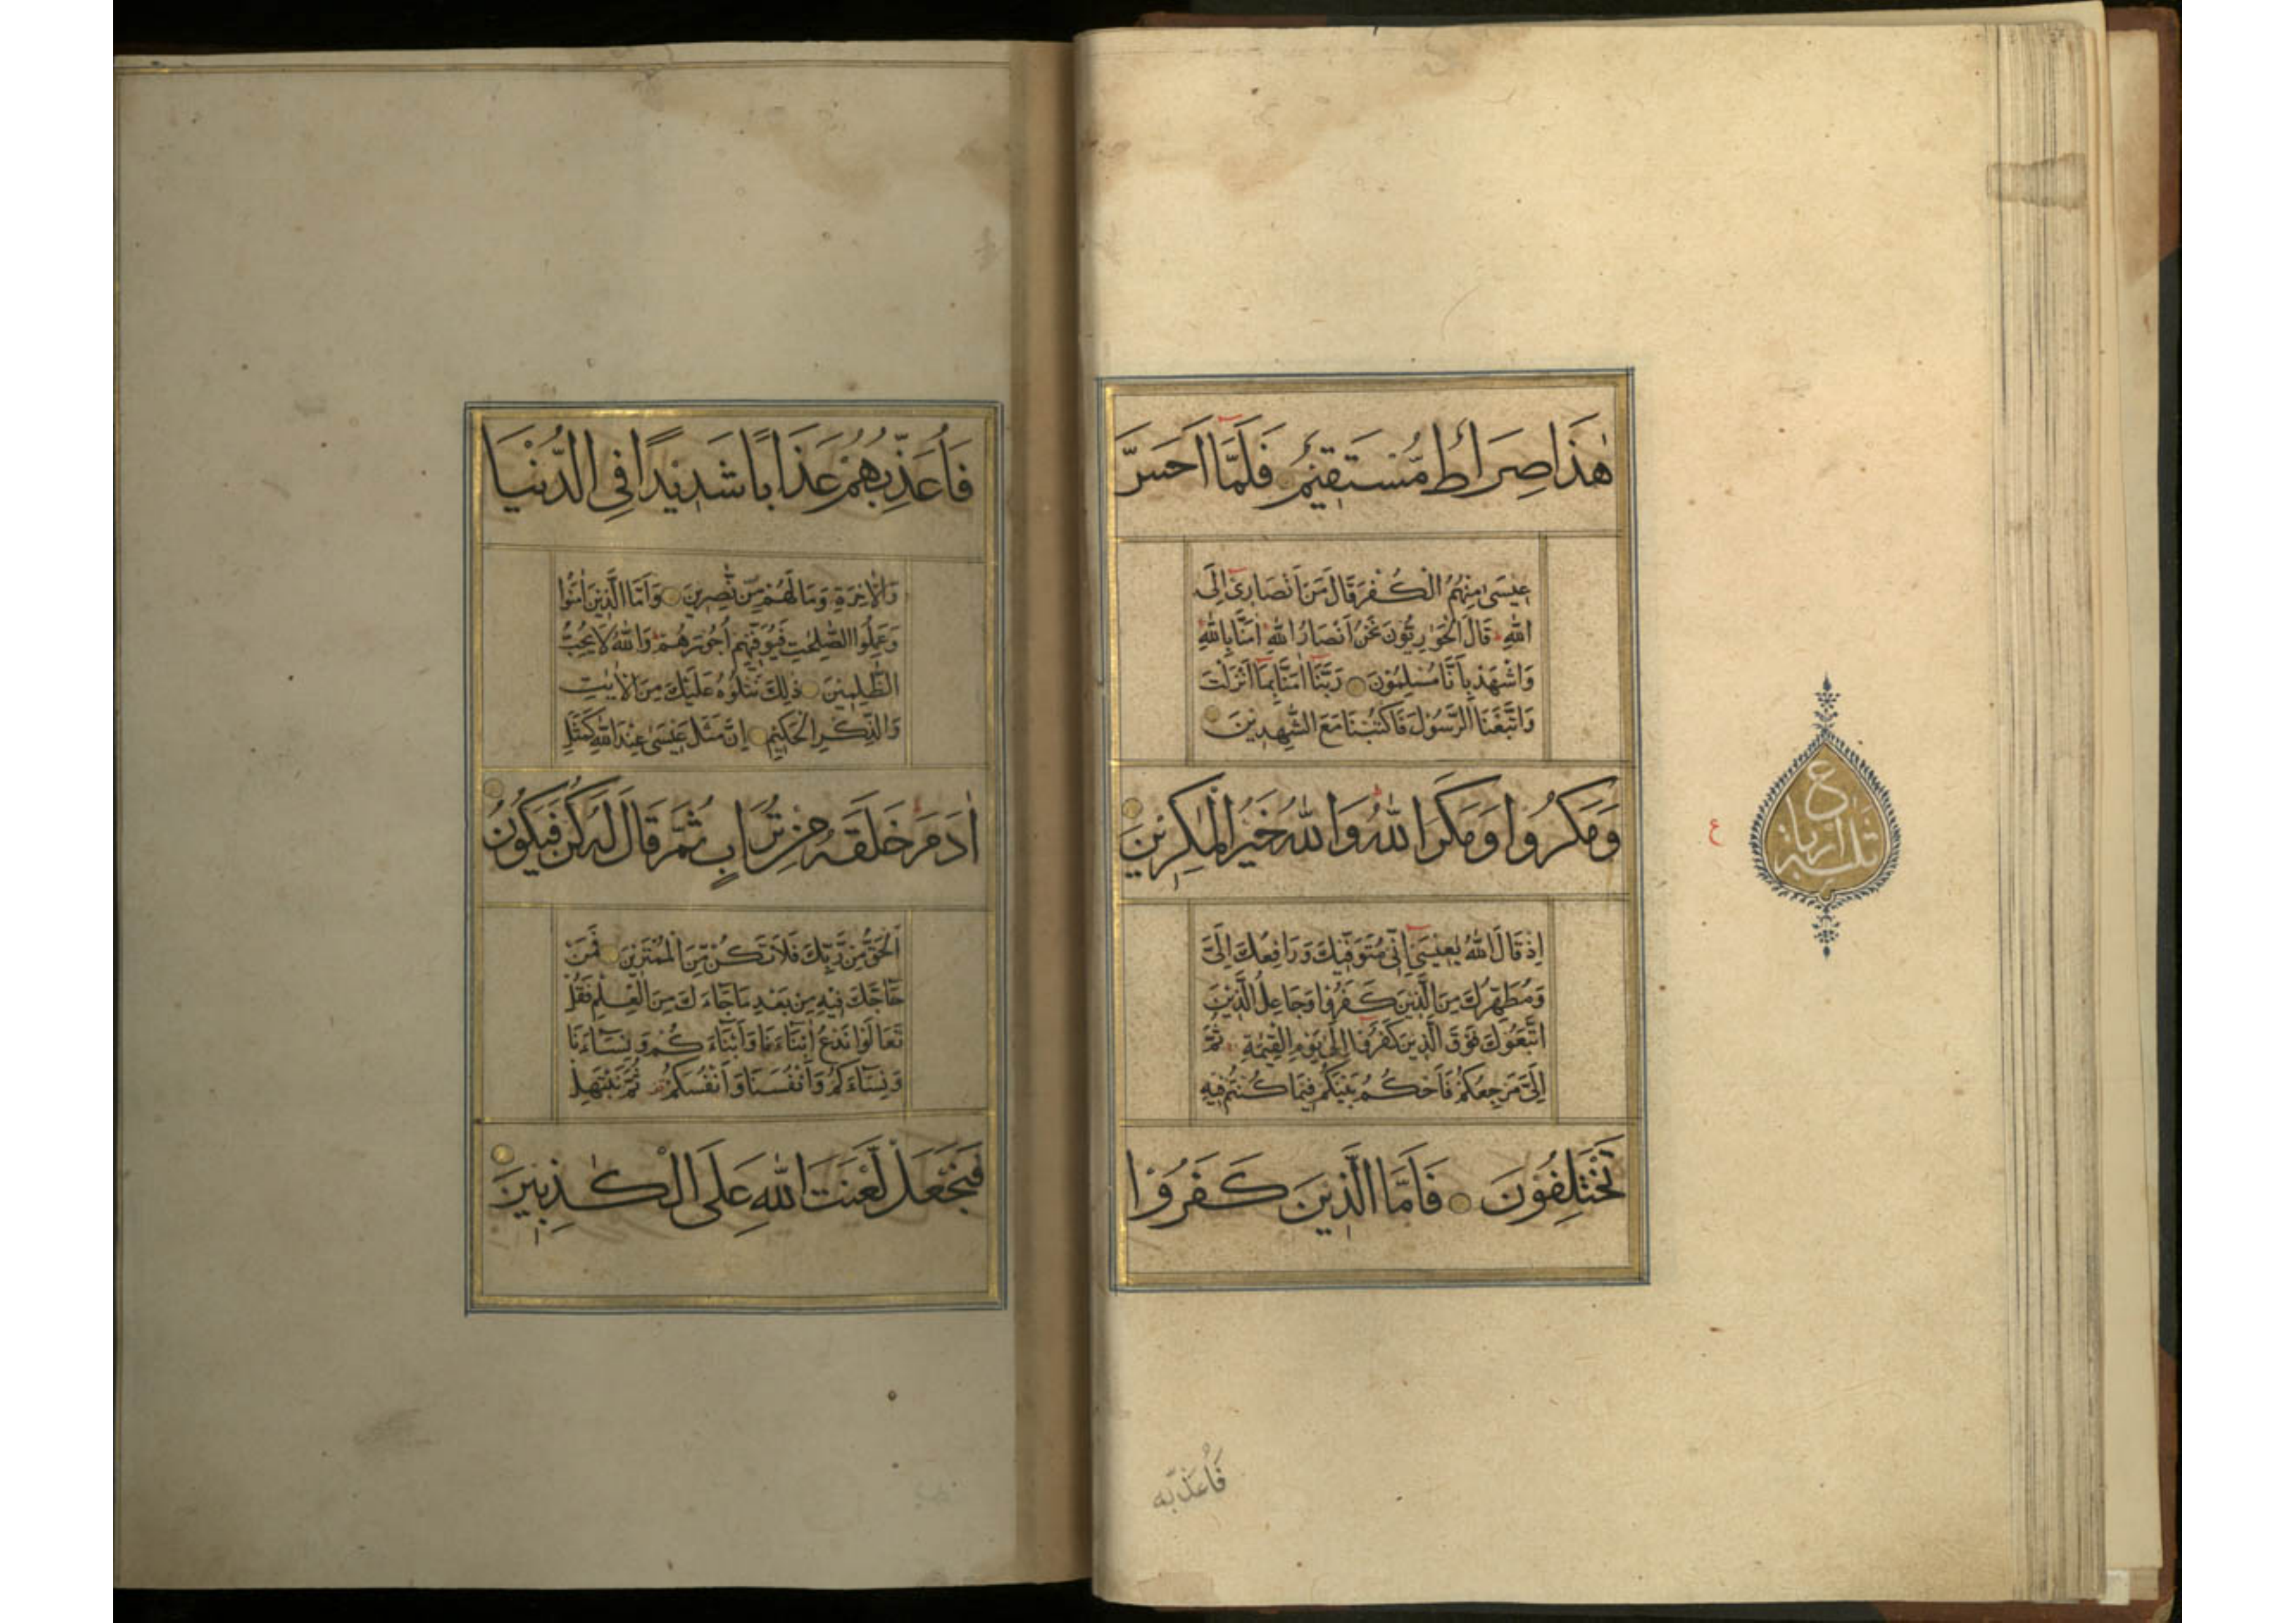 هٰذَا صِرَاطٌ مُّسْتَقِيْمٌ فَلَمَّا اَحَسَّ
عِيْسٰى مِنْهُمُ الْكُفْرَ قَالَ مَنْ اَنْصَارِىْٓ اِلَى
اللّٰهِ قَالَ الْحَوَارِيُّوْنَ نَحْنُ اَنْصَارُ اللّٰهِ اٰمَنَّا بِاللّٰهِ
وَاشْهَدْ بِاَنَّا مُسْلِمُوْنَ رَبَّنَآ اٰمَنَّا بِمَآ اَنْزَلْتَ
وَاتَّبَعْنَا الرَّسُوْلَ فَاكْتُبْنَا مَعَ الشّٰهِدِيْنَ
وَمَكَرُوْا وَمَكَرَ اللّٰهُ وَاللّٰهُ خَيْرُ الْمٰكِرِيْنَ
اِذْ قَالَ اللّٰهُ يٰعِيْسٰٓى اِنِّىْ مُتَوَفِّيْكَ وَرَافِعُكَ اِلَىَّ
وَمُطَهِّرُكَ مِنَ الَّذِيْنَ كَفَرُوْا وَجَاعِلُ الَّذِيْنَ
اتَّبَعُوْكَ فَوْقَ الَّذِيْنَ كَفَرُوْٓا اِلٰى يَوْمِ الْقِيٰمَةِ ثُمَّ
اِلَىَّ مَرْجِعُكُمْ فَاَحْكُمُ بَيْنَكُمْ فِيْمَا كُنْتُمْ فِيْهِ
تَخْتَلِفُوْنَ فَاَمَّا الَّذِيْنَ كَفَرُوْا
ع
فَاُعَذِّبُه
فَاُعَذِّبُهُمْ عَذَابًا شَدِيْدًا فِى الدُّنْيَا
وَالْاٰخِرَةِ وَمَا لَهُمْ مِّنْ نّٰصِرِيْنَ وَاَمَّا الَّذِيْنَ اٰمَنُوْا
وَعَمِلُوا الصّٰلِحٰتِ فَيُوَفِّيْهِمْ اُجُوْرَهُمْ وَاللّٰهُ لَا يُحِبُّ
الظّٰلِمِيْنَ ذٰلِكَ نَتْلُوْهُ عَلَيْكَ مِنَ الْاٰيٰتِ
وَالذِّكْرِ الْحَكِيْمِ اِنَّ مَثَلَ عِيْسٰى عِنْدَ اللّٰهِ كَمَثَلِ
اٰدَمَ خَلَقَهٗ مِنْ تُرَابٍ ثُمَّ قَالَ لَهٗ كُنْ فَيَكُوْنُ
اَلْحَقُّ مِنْ رَّبِّكَ فَلَا تَكُنْ مِّنَ الْمُمْتَرِيْنَ فَمَنْ
حَآجَّكَ فِيْهِ مِنْ بَعْدِ مَا جَآءَكَ مِنَ الْعِلْمِ فَقُلْ
تَعَالَوْا نَدْعُ اَبْنَآءَنَا وَاَبْنَآءَكُمْ وَنِسَآءَنَا
وَنِسَآءَكُمْ وَاَنْفُسَنَا وَاَنْفُسَكُمْ ثُمَّ نَبْتَهِلْ
فَنَجْعَلْ لَّعْنَتَ اللّٰهِ عَلَى الْكٰذِبِيْنَ